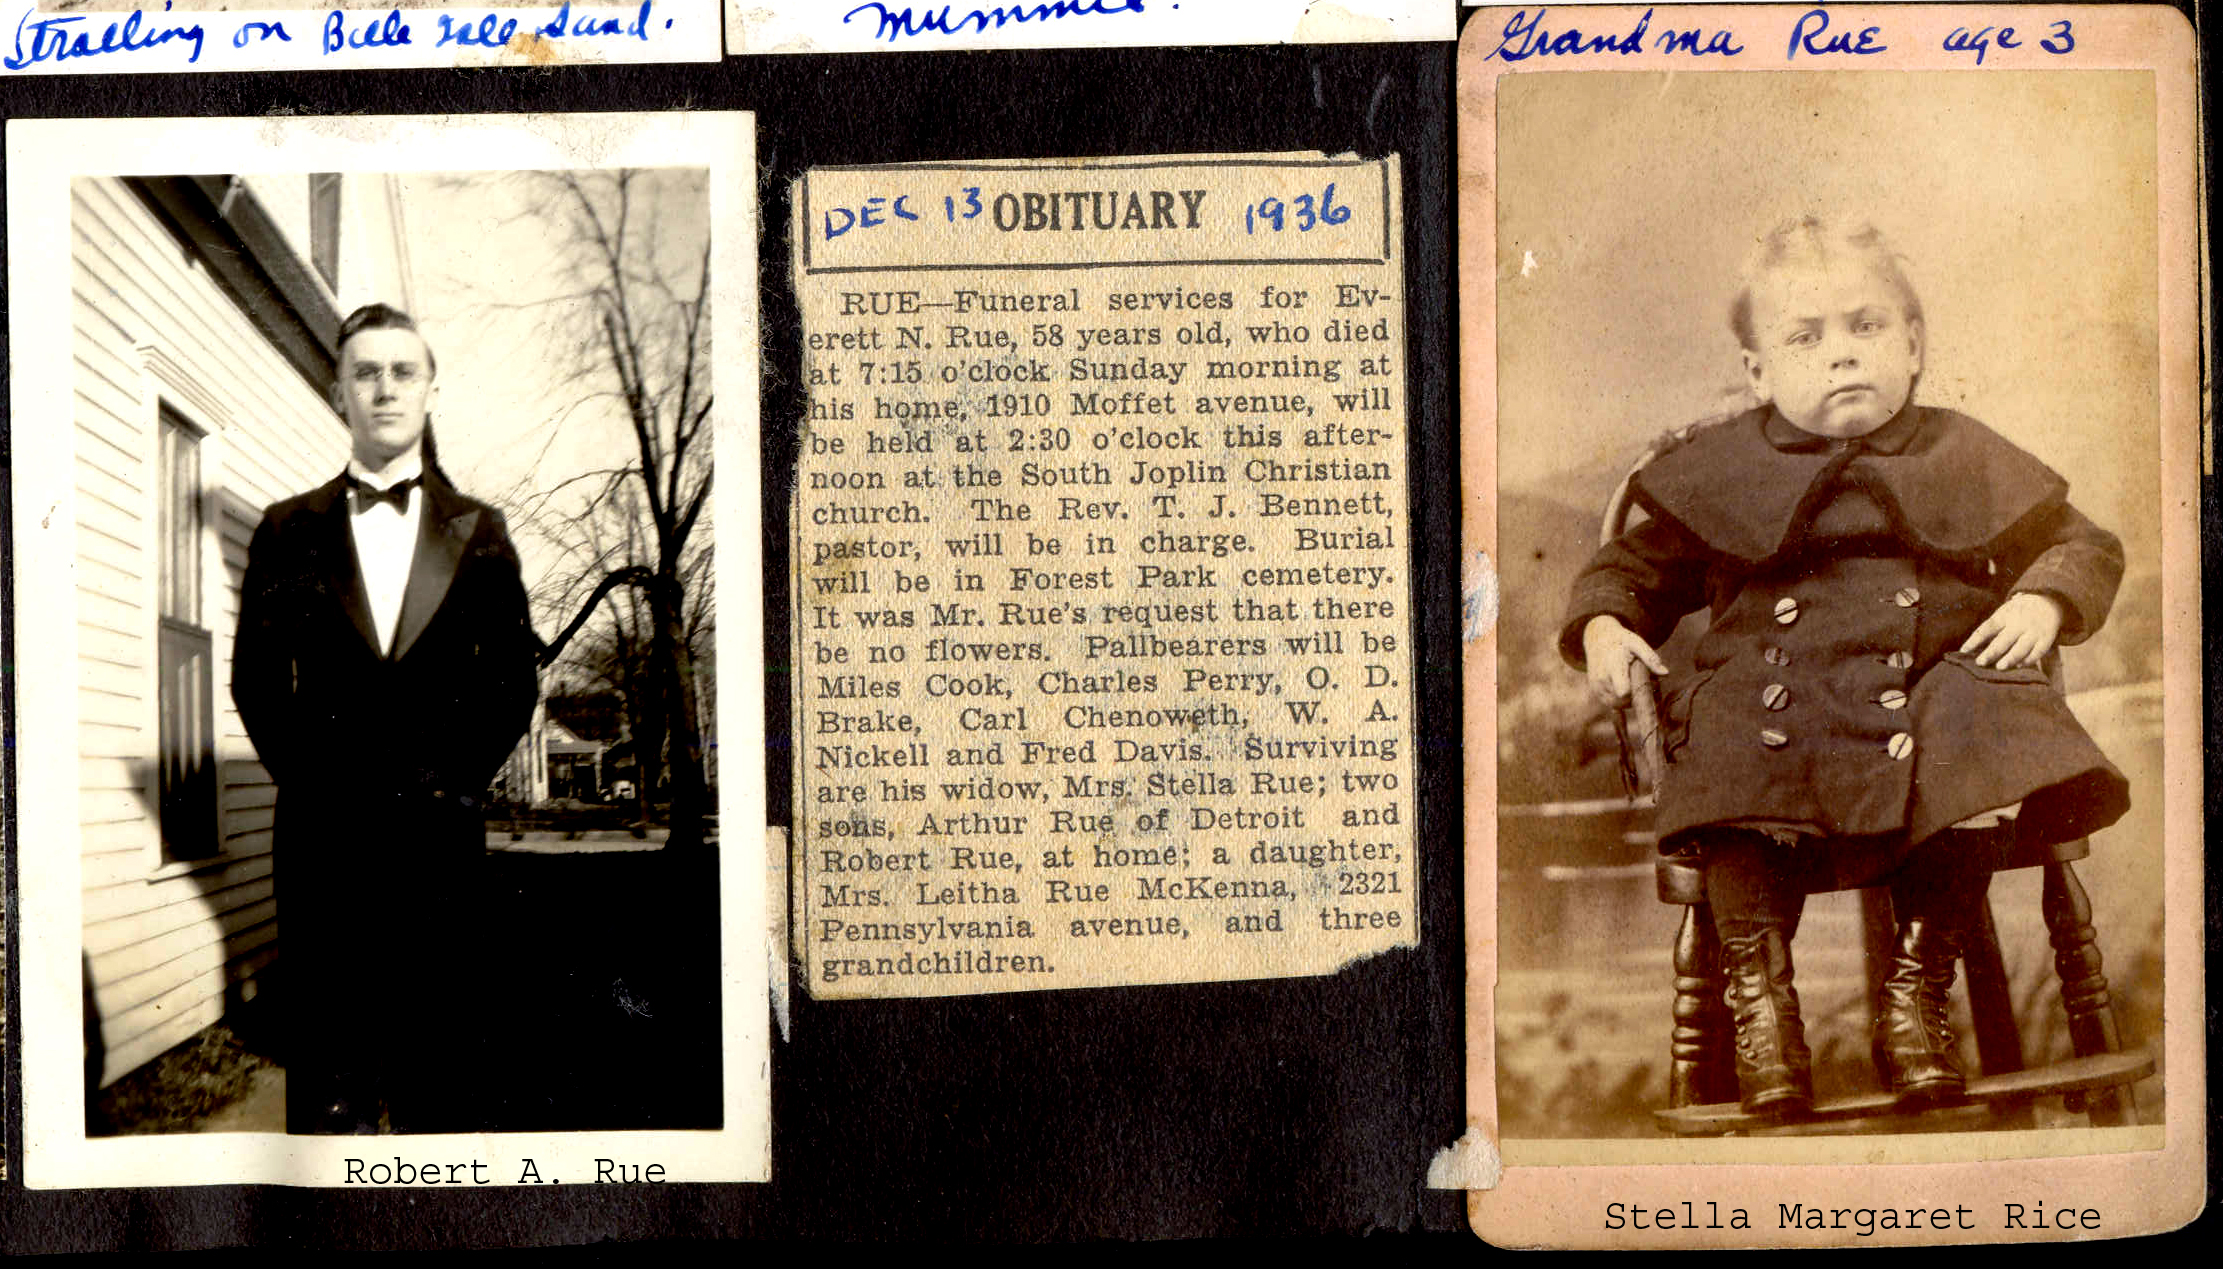 Stralling on Belle Isle Sand.
Mummie.
Grandma Rue age 3
DEC 13 OBITUARY 1936
RUE—Funeral services for Ev-
erett N. Rue, 58 years old, who died
at 7:15 o'clock Sunday morning at
his home, 1910 Moffet avenue, will
be held at 2:30 o'clock this after-
noon at the South Joplin Christian
church. The Rev. T. J. Bennett,
pastor, will be in charge. Burial
will be in Forest Park cemetery.
It was Mr. Rue's request that there
be no flowers. Pallbearers will be
Miles Cook, Charles Perry, O. D.
Brake, Carl Chenoweth, W. A.
Nickell and Fred Davis. Surviving
are his widow, Mrs. Stella Rue; two
sons, Arthur Rue of Detroit and
Robert Rue, at home; a daughter,
Mrs. Leitha Rue McKenna, 2321
Pennsylvania avenue, and three
grandchildren.
Robert A. Rue
Stella Margaret Rice